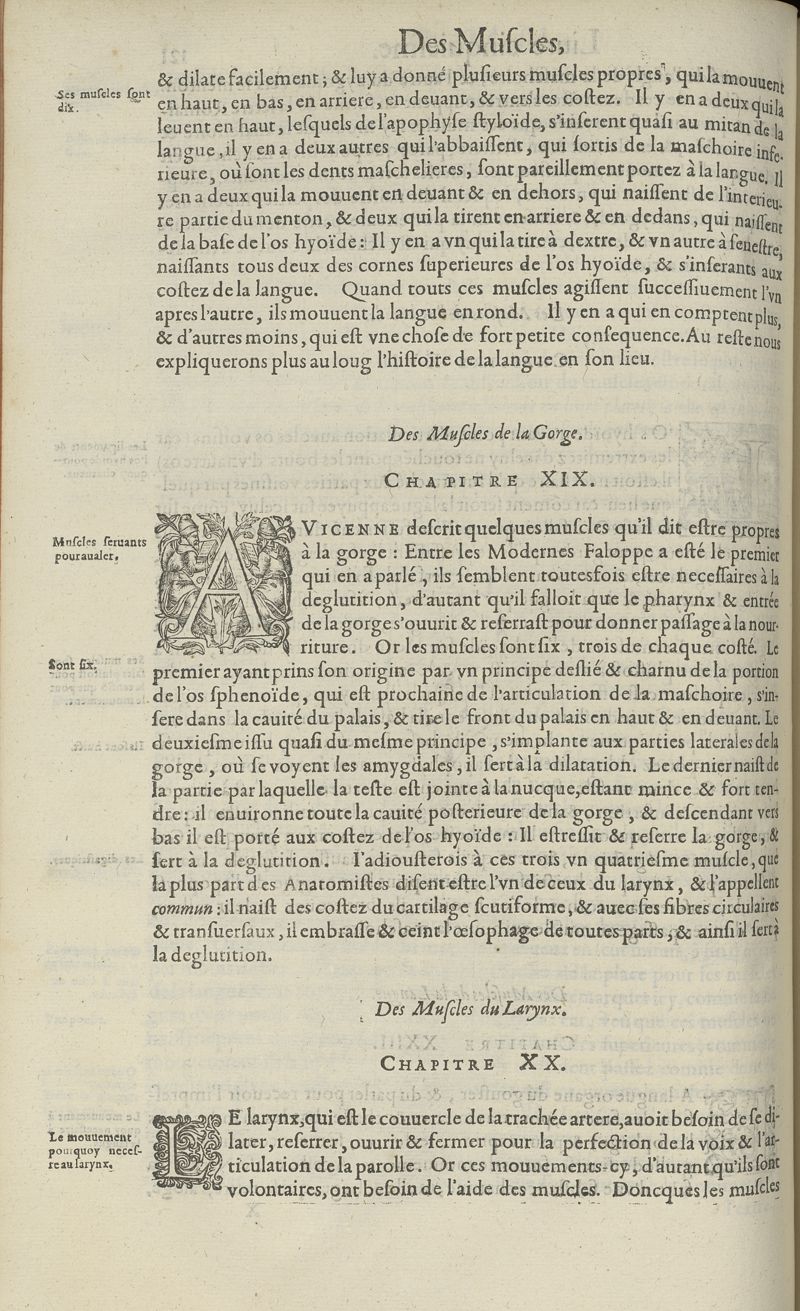 Des Muſcles,
& dilate facilement ; & luy a donné pluſieurs muſcles propres, qui la mouuent
Ses muſcles ſont
dix.
en haut, en bas, en arriere, en deuant, & vers les coſtez. Il y en a deux qui la
leuent en haut, leſquels de l'apophyſe ſtyloïde, s'inſerent quaſi au mitan de la
langue, il y en a deux autres qui l'abbaiſſent, qui ſortis de la maſchoire infe-
rieure, où ſont les dents maſchelieres, ſont pareillement portez à la langue. Il
y en a deux qui la mouuent en deuant & en dehors, qui naiſſent de l'interieu-
re partie du menton, & deux qui la tirent en arriere & en dedans, qui naiſſent
de la baſe de l'os hyoïde : Il y en a vn qui la tire à dextre, & vn autre à ſeneſtre,
naiſſants tous deux des cornes ſuperieures de l'os hyoïde, & s'inſerants aux
coſtez de la langue. Quand touts ces muſcles agiſſent ſucceſſiuement l'vn
apres l'autre, ils mouuent la langue en rond. Il y en a qui en comptent plus,
& d'autres moins, qui eſt vne choſe de fort petite conſequence. Au reſte nous
expliquerons plus au loug l'hiſtoire de la langue en ſon lieu.
Des Muſcles de la Gorge.
CHAPITRE XIX.
Muſcles ſeruants
pour aualer.
AVICENNE deſcrit quelques muſcles qu'il dit eſtre propres
à la gorge : Entre les Modernes Faloppe a eſté le premier
qui en a parlé, ils ſemblent toutesfois eſtre neceſſaires à la
deglutition, d'autant qu'il falloit que le pharynx & entrée
de la gorge s'ouurit & reſerraſt pour donner paſſage à la nour-
riture. Or les muſcles ſont ſix, trois de chaque coſté. Le
Sont ſix.
premier ayant prins ſon origine par vn principe deſlié & charnu de la portion
de l'os ſphenoïde, qui eſt prochaine de l'articulation de la maſchoire, s'in-
ſere dans la cauité du palais, & tire le front du palais en haut & en deuant. Le
deuxieſme iſſu quaſi du meſme principe, s'implante aux parties laterales de la
gorge, où ſe voyent les amygdales, il ſert à la dilatation. Le dernier naiſt de
la partie par laquelle la teſte eſt jointe à la nucque, eſtant mince & fort ten-
dre : il enuironne toute la cauité poſterieure de la gorge, & deſcendant vers
bas il eſt porté aux coſtez de l'os hyoïde : Il eſtreſſit & reſerre la gorge, &
ſert à la deglutition. I'adiouſterois à ces trois vn quatrieſme muſcle, que
la plus part des Anatomiſtes diſent eſtre l'vn de ceux du larynx, & l'appellent
commun : il naiſt des coſtez du cartilage ſcutiforme, & auec ſes fibres circulaires
& tranſuerſaux, il embraſſe & ceint l'œſophage de toutes parts, & ainſi il ſert à
la deglutition.
Des Muſcles du Larynx.
CHAPITRE XX.
Le mouuement
pourquoy neceſ-
re au larynx.
LE larynx, qui eſt le couuercle de la trachée artere, auoit beſoin de ſe di-
later, reſerrer, ouurir & fermer pour la perfection de la voix & l'ar-
ticulation de la parolle. Or ces mouuements-cy, d'autant qu'ils ſont
volontaires, ont beſoin de l'aide des muſcles. Doncques les muſcles